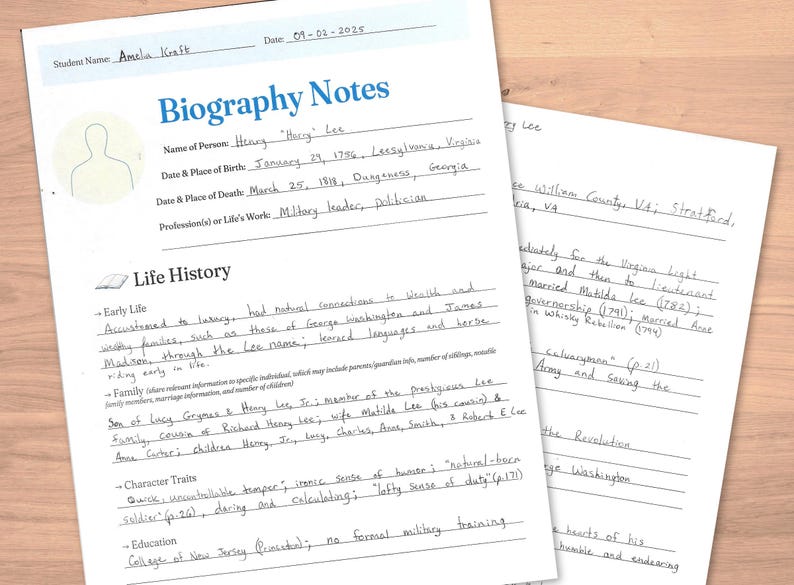 Student Name: Amelia Kraft Date: 09-02-2025
Biography Notes
Name of Person: Henry "Harry" Lee
Date & Place of Birth: January 29, 1756, Leesylvania, Virginia
Date & Place of Death: March 25, 1818, Dungeness, Georgia
Profession(s) or Life's Work: Military leader, politician
Life History
→ Early Life
Accustomed to luxury, had natural connections to wealth and
wealthy families, such as those of George Washington and James
Madison, through the Lee name; learned languages and horse
riding early in life.
→ Family (share relevant information to specific individual, which may include parents/guardian info, number of siblings, notable
family members, marriage information, and number of children)
Son of Lucy Grymes & Henry Lee, Jr.; member of the prestigious Lee
family, cousin of Richard Henry Lee; wife Matilda Lee (his cousin) &
Anne Carter; children Henry, Jr., Lucy, Charles, Anne, Smith, & Robert E Lee
→ Character Traits
Quick, uncontrollable temper"; ironic sense of humor; "natural-born
soldier" (p.26), daring and calculating; "lofty sense of duty" (p.171)
→ Education
College of New Jersey (Princeton); no formal military training
ry Lee
ce William County, VA; Stratford,
ria, VA
ediately for the Virginia Light
ajor and then to lieutenant
married Matilda Lee (1782);
governorship (1791); married Anne
in Whisky Rebellion (1794)
calvaryman" (p.21)
Army and saving the
the Revolution
ge Washington
e hearts of his
humble and endearing